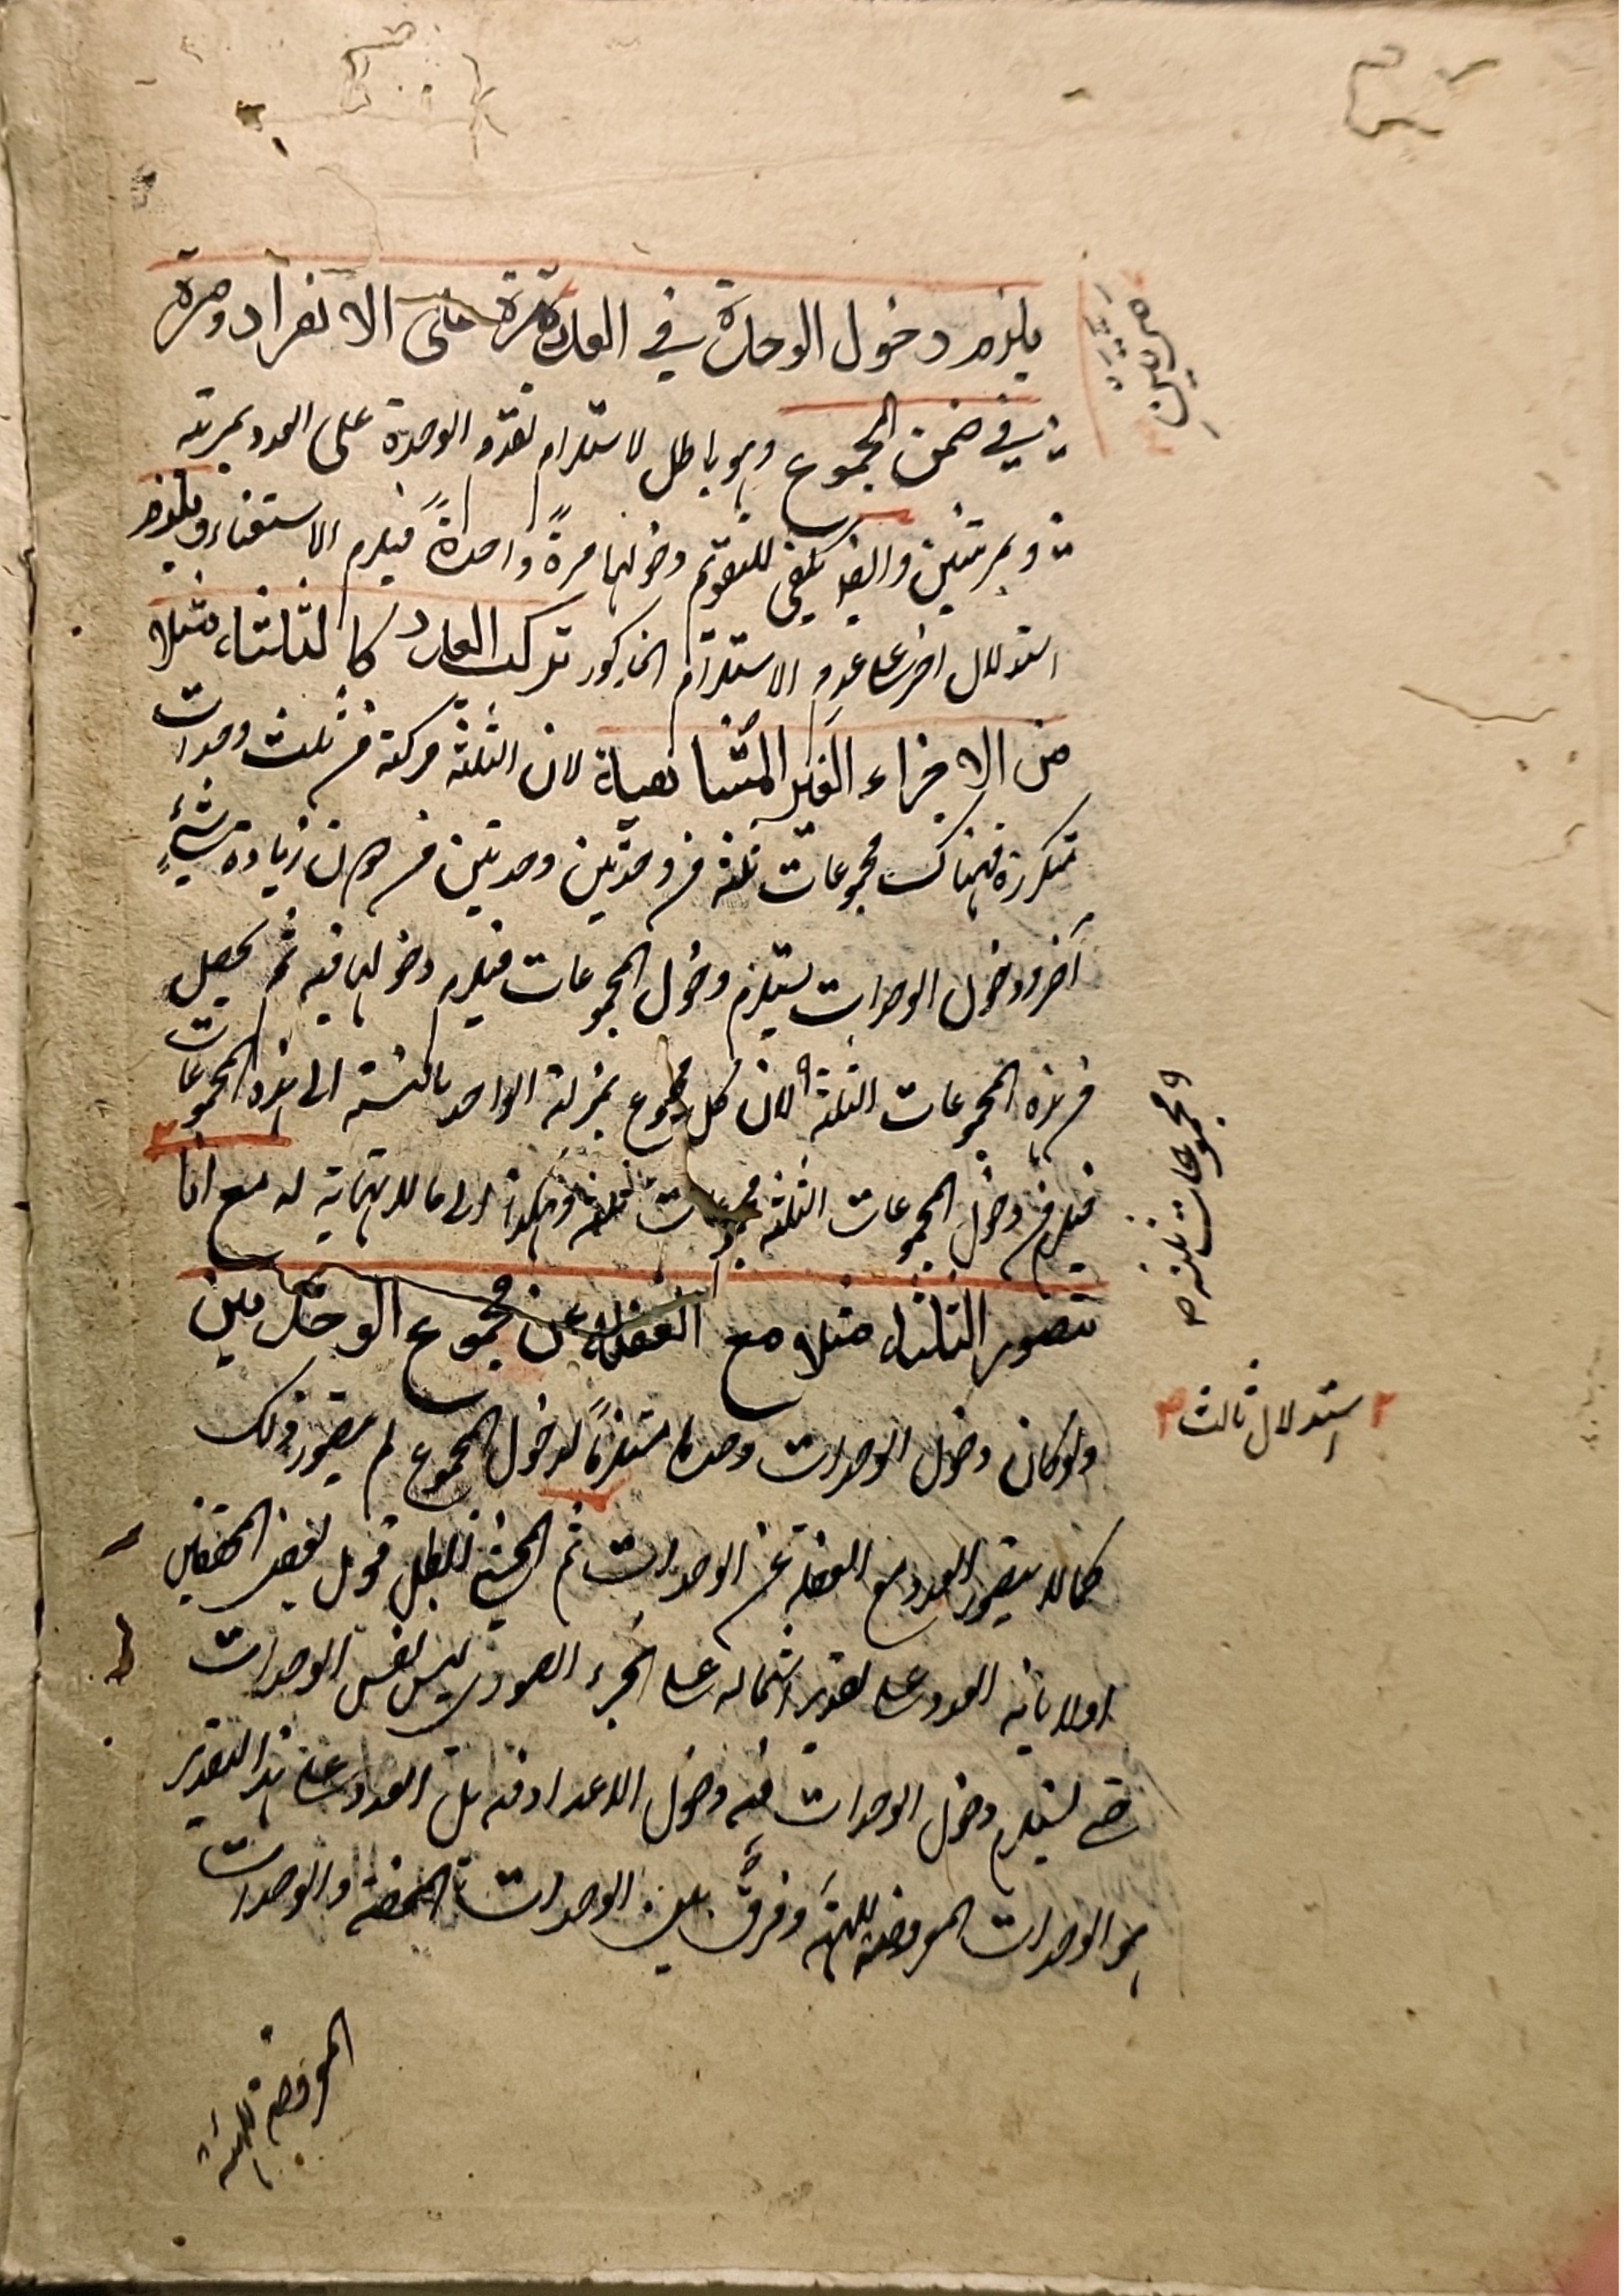 يلزم دخول الوحدة في العدد مرة على الانفراد ومرة
في ضمن المجموع وهو باطل لاستلزام تقدم الوحدة على العدد بمرتبه
وبمرتبتين وايضا يكفى للتقويم دخولها مرةً واحدةً فيلزم الاستغناء ويلزم
استدلال اخر على عدم الاستلزام المذكور تركب العدد كالثلثة مثلا
من الاجزاء الغير المتناهية لان الثلثة مركبة من ثلث وحدات
متكررة فهناك مجموعات ثلثة من وحدتين وحدتين من دون زيادة شئٍ
آخر ودخول الوحدات يستلزم دخول المجموعات فيلزم دخولها فيه ثم يحصل
من هذه المجموعات الثلثة لان كل مجموع بمنزلة الواحد بالنسبة الى هذه المجموعات
فيلزم من دخول المجموعات الثلثة مجموعات ثلثة وهكذا الى ما لا نهاية له مع انا
نتصور الثلثة مثلا مع الغفلة عن مجموع الوحدتين
ولو كان دخول الوحدات وحدها مستلزماً لدخول المجموع لم يتصور ذلك
كما لا يتصور العدد مع الغفلة عن الوحدات ثم المحشي ابطل قول بعض المحققين
اولا بانه العدد على تقدير اشتماله على الجزء الصورى ليس نفس الوحدات
حتى يستلزم دخول الوحدات فيه دخول الاعداد فيه بل العدد على هذا التقدير
هو الوحدات المعروضة للهيئة وفرق بين الوحدات المحضة والوحدات
المعروضة للهيئة
ومجموعات ثلثة
استدلال ثالث